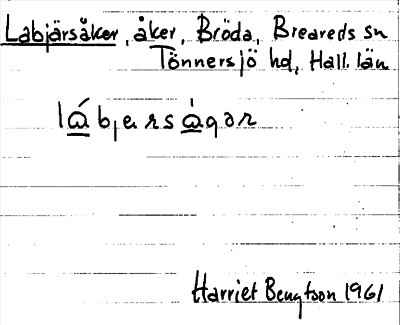 Labjärsåker, åker, Bröda, Breareds sn
Tönnersjö hd, Hall. län
lá̱bjersà̱gər
Harriet Bengtson 1961